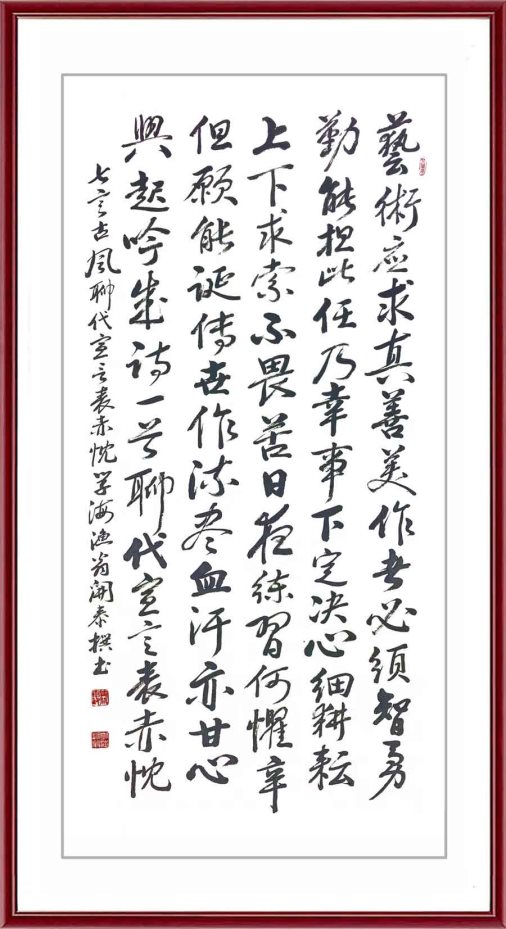 藝術应求真善美作者必须智勇
勤能担此任乃幸事下定决心细耕耘
上下求索不畏苦日夜练習何懼辛
但願能诞傳世作流尽血汗亦甘心
興起吟成诗一首聊代宣言表赤忱
七言古风聊代宣言表赤忱学海渔翁開泰撰书